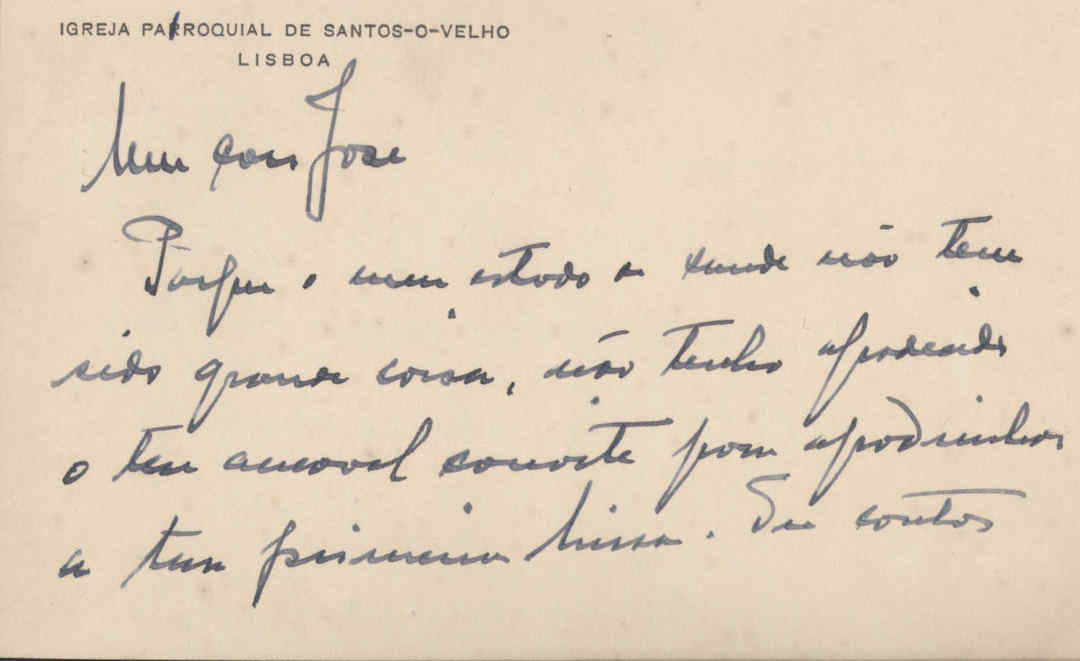 IGREJA PARROQUIAL DE SANTOS-O-VELHO
LISBOA
Meu caro José
Porque o meu estado de saude não tem
sido grande coisa, não tenho agradecido
o teu amavel convite para apadrinhar
a tua primeira Missa. Se contas